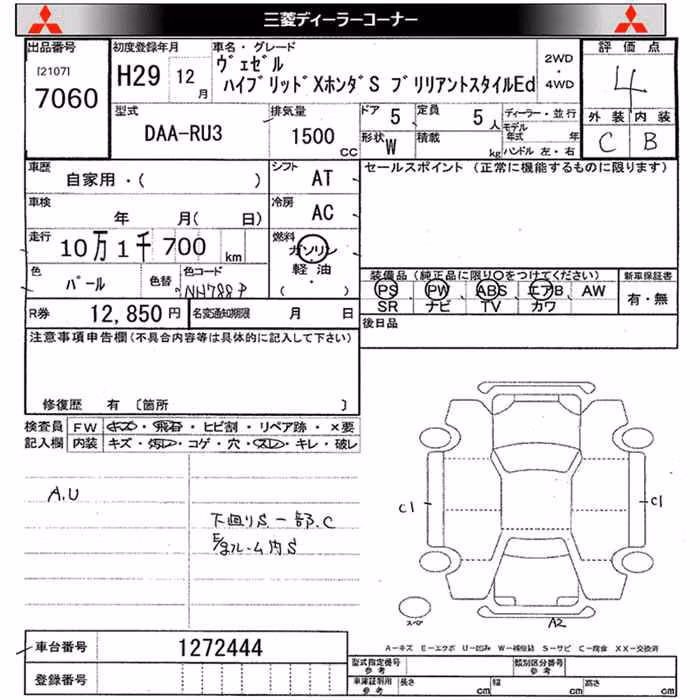 三菱ディーラーコーナー
出品番号
[2107]
7060
初度登録年月
H29 12月
車名・グレード
ヴェゼル
ハイブリッドXホンダS ブリリアントスタイルEd
2WD
・
4WD
評価点
4
外装 内装
C B
型式
DAA-RU3
排気量
1500 CC
ドア 5
定員 5人
形状 W
積載 kg
ディーラー・並行
モデル年式 年
ハンドル 左・右
車歴
自家用・( )
シフト
AT
セールスポイント (正常に機能するものに限ります)
車検
年 月( 日)
冷房
AC
走行
10万1千700 km
燃料
ガソリン
・
軽油
・
( )
色
パール
色替
色コード
NH788P
装備品(純正品に限り○をつけてください)
PS PW ABS エアB AW
SR ナビ TV カワ
新車保証書
有・無
R券 12,850円
名変通知期限 月 日
後日品
注意事項申告欄(不具合内容等は具体的に記入して下さい)
修復歴 有 〔箇所 〕
検査員記入欄
FW キズ・飛石・ヒビ割・リペア跡・×要
内装 キズ・汚レ・コゲ・穴・スレ・キレ・破レ
A.U
下廻りS.一部.C
S
C1
C1
スペア
A2
A-キズ E-エクボ U-凹み W-補修跡 S-サビ C-腐食 XX-交換済
車台番号 1272444
登録番号
型式指定番号 参考
類別区分番号 参考
車庫証明用 参考
長さ cm
幅 cm
高さ cm